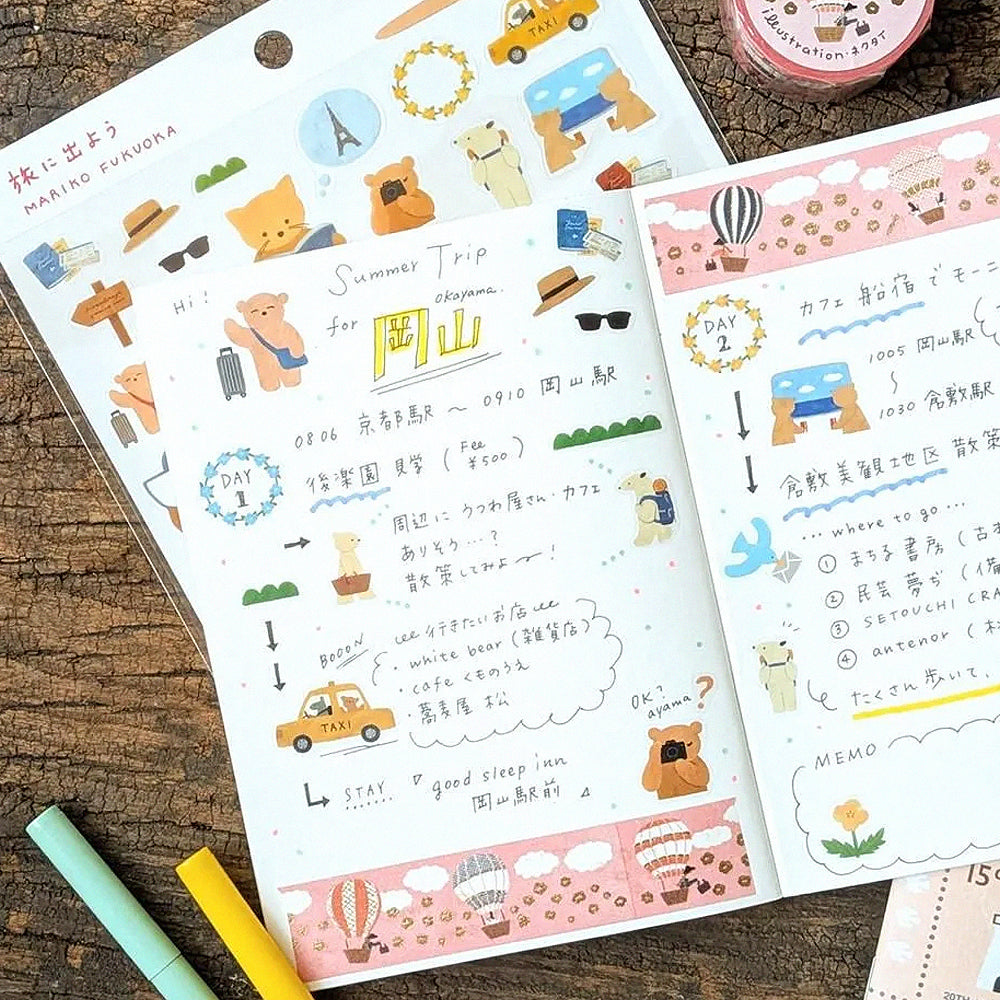 旅に出よう
MARIKO FUKUOKA
TAXI
illustration・ネクタイ
Hi!
Summer Trip
for 岡山
okayama.
0806 京都駅 ～ 0910 岡山駅
DAY 1
後楽園 見学 (Fee ¥500)
周辺に うつわ屋さん・カフェ
ありそう…?
散策してみよ〜!
BOOON
行きたいお店
・white bear (雑貨店)
・cafe くものうえ
・蕎麦屋 松
TAXI
OK?
ayama?
STAY
good sleep inn
岡山駅前
DAY 2
カフェ 船宿 でモーニ
1005 岡山駅
1030 倉敷駅
倉敷美観地区 散策
... where to go ...
① まちる書房 (古本
② 民芸 夢ぢ (備
③ SETOUCHI CRA
④ antenor (
たくさん歩いて、
MEMO
20TH